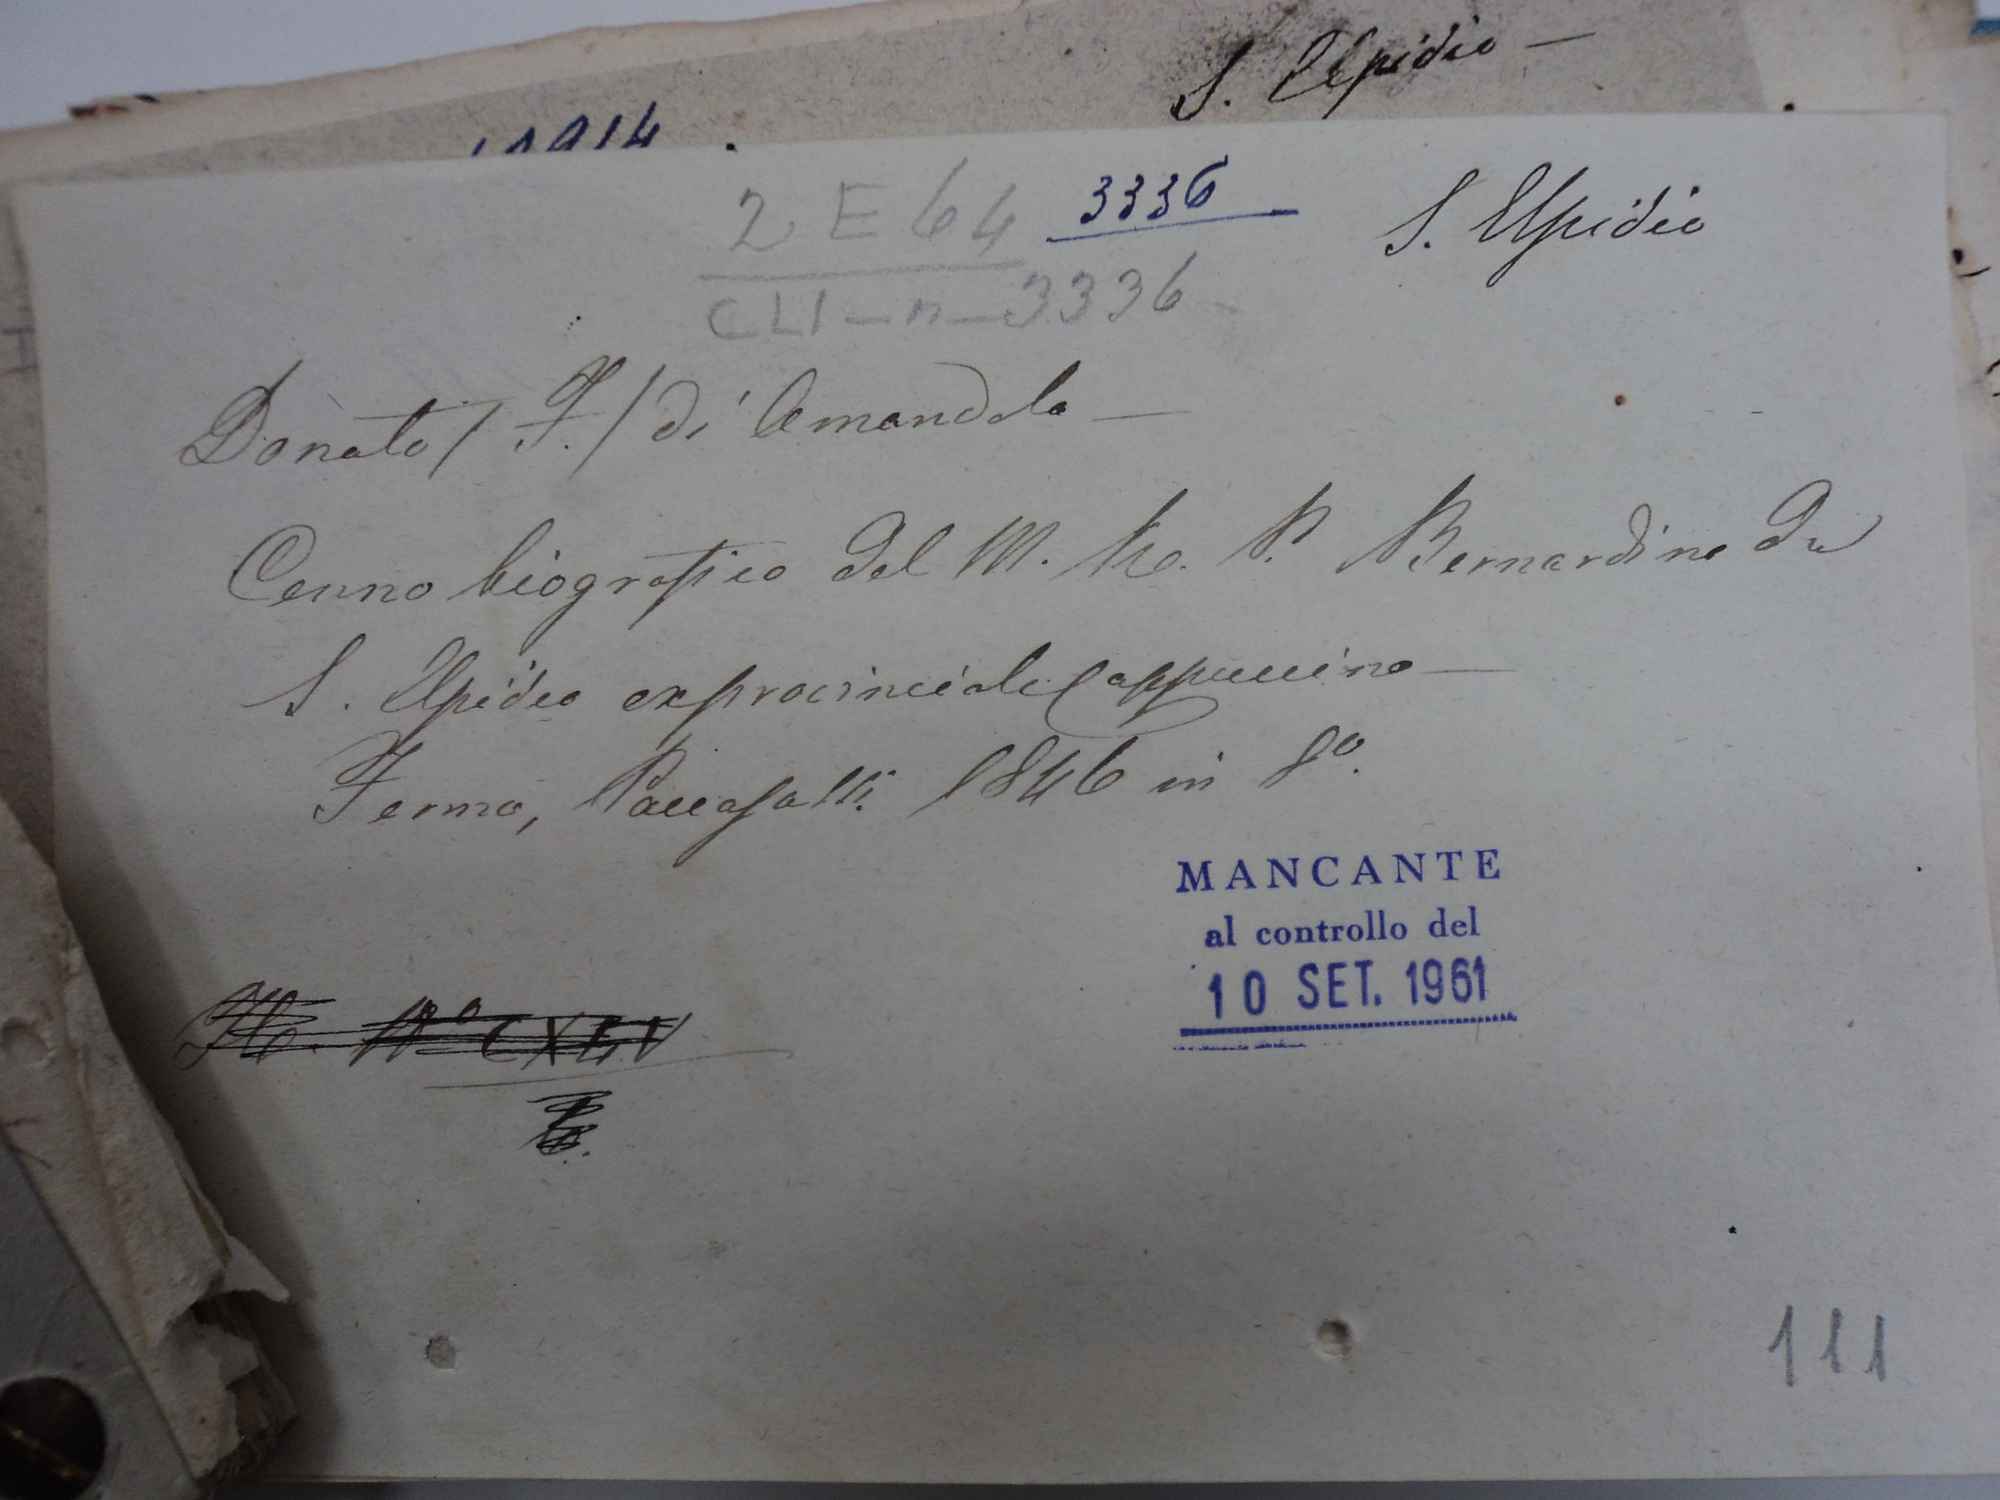 S. Elpidio —
3336
2 E 64
S. Elpidio
CLI - n - 3336
Donato / F. / di Amandola —
Cenno biografico del M. R. P. Bernardino da
S. Elpidio exprovinciale Cappuccino —
Fermo, Paccasassi 1846 in 8º.
MANCANTE
al controllo del
10 SET. 1961
Nº CXLV
111